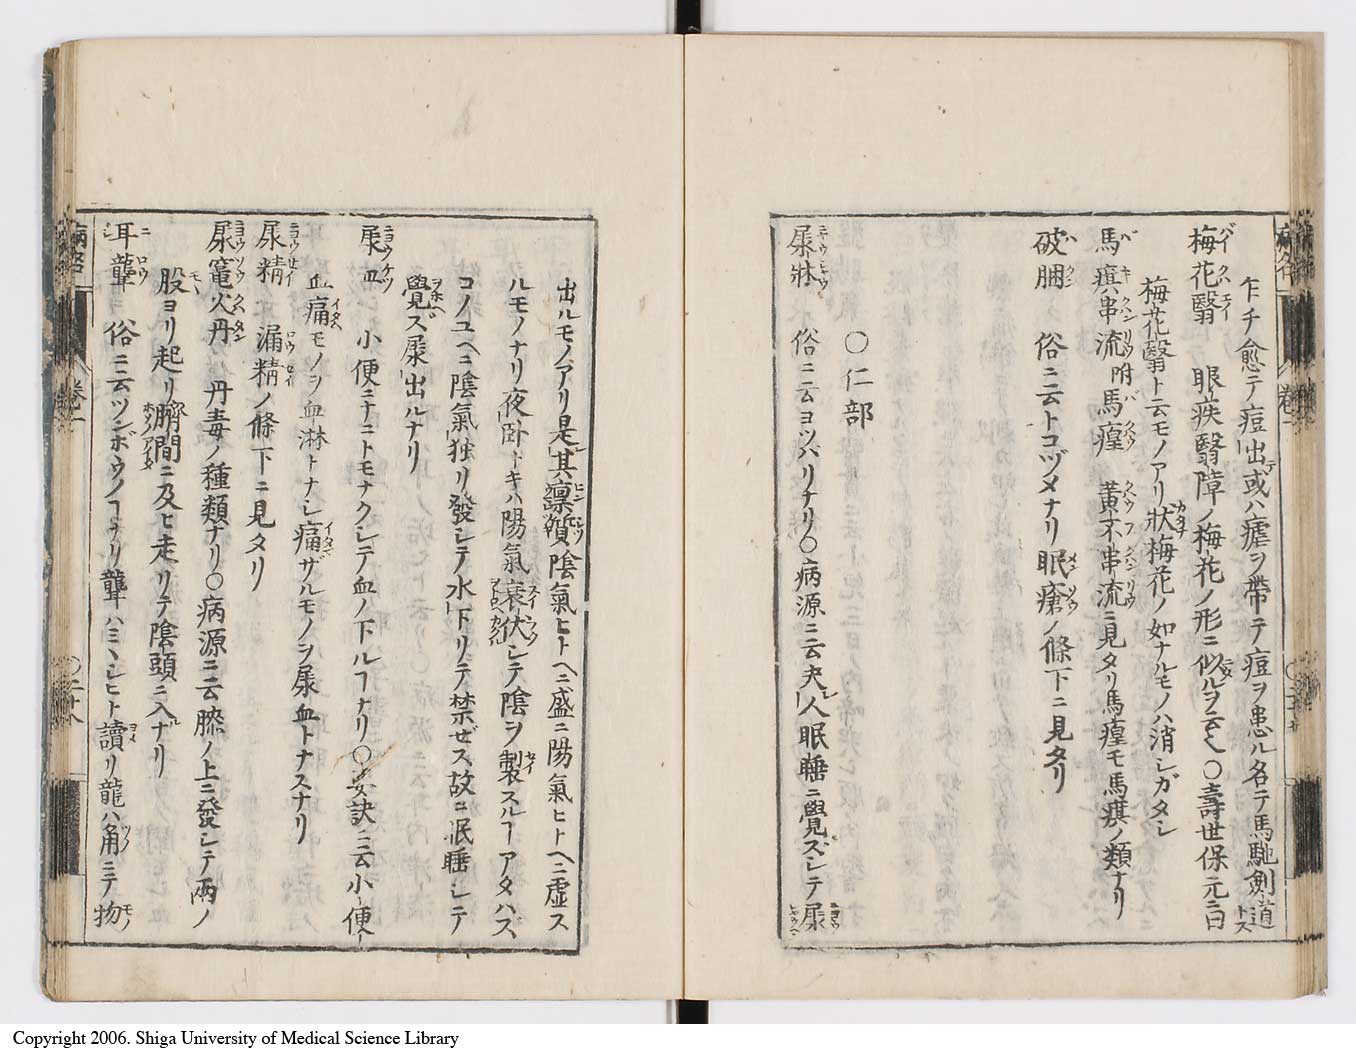 乍チ愈テ痘出或ハ瘧ヲ帶テ痘ヲ患ル名テ馬馳劍道トス
梅花翳 眼疾翳障ノ梅花ノ形ニ似ルヲ云〇壽世保元ニ曰
梅花翳ト云モノアリ狀梅花ノ如ナルモノハ消シガタシ
馬㾵串流附馬瘽 黄不串流ニ見タリ馬瘽モ馬㾵ノ類ナリ
破䐃 俗ニ云トコヅメナリ眠瘡ノ條下ニ見タリ
〇仁部
尿牀 俗ニ云ヨツバリナリ〇病源ニ云夫人眠睡ニ覺ズシテ尿
出ルモノアリ是其稟質陰氣ヒトヘニ盛ニ陽氣ヒトヘニ虚ス
ルモノナリ夜卧トキハ陽氣衰伏シテ陰ヲ製スルヿアタハズ
コノユヘニ陰氣独リ發シテ水下リテ禁ゼス故ニ泯睡シテ
覺ス尿出ルナリ
尿血 小便ニナニトモナクシテ血ノ下ルヿナリ〇妄訣ニ云小便
血痛モノヲ血淋トナシ痛ザルモノヲ尿血トナスナリ
尿精 漏精ノ條下ニ見タリ
尿竈火丹 丹毒ノ種類ナリ〇病源ニ云膝ノ上ニ發シテ兩ノ
股ヨリ起リ臍間ニ及ヒ走リテ陰頭ニ入ナリ
耳聾 俗ニ云ツンボウノヿナリ聾ハミヽシヒト讀リ龍ハ角ニテ物
Copyright 2006. Shiga University of Medical Science Library